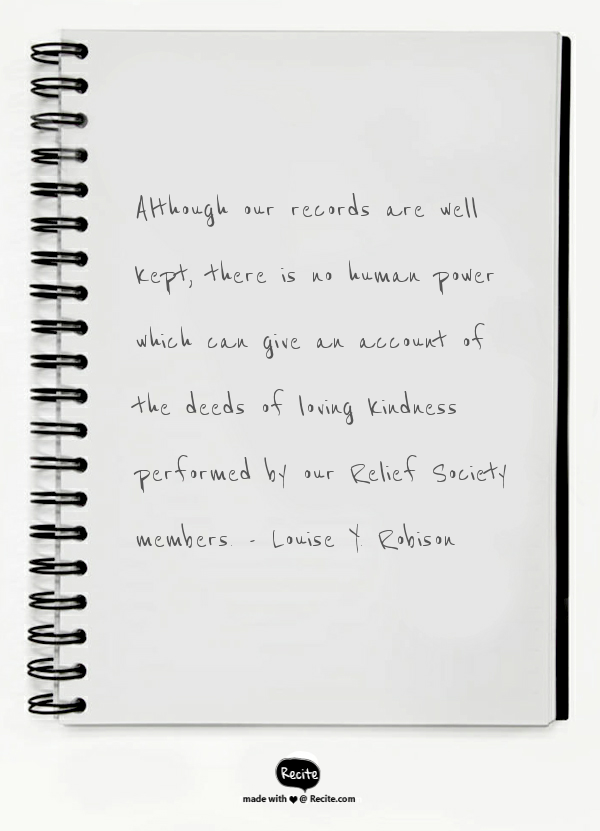 Although our records are well
kept, there is no human power
which can give an account of
the deeds of loving kindness
performed by our Relief Society
members. - Louise Y. Robison
Recite
made with ♥ @ Recite.com